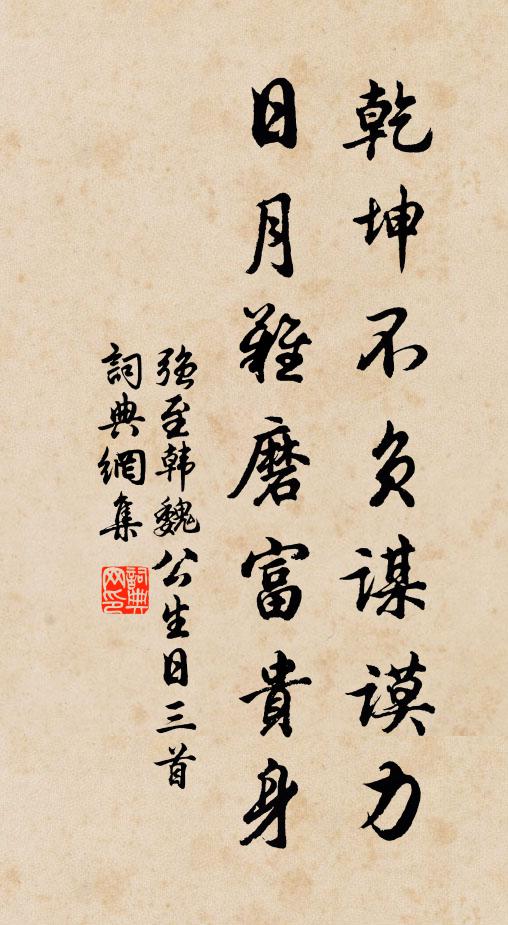 乾坤不负謀謨力
日月難磨富貴身
强至韩魏公生日三首
詞典網集
詞典网印